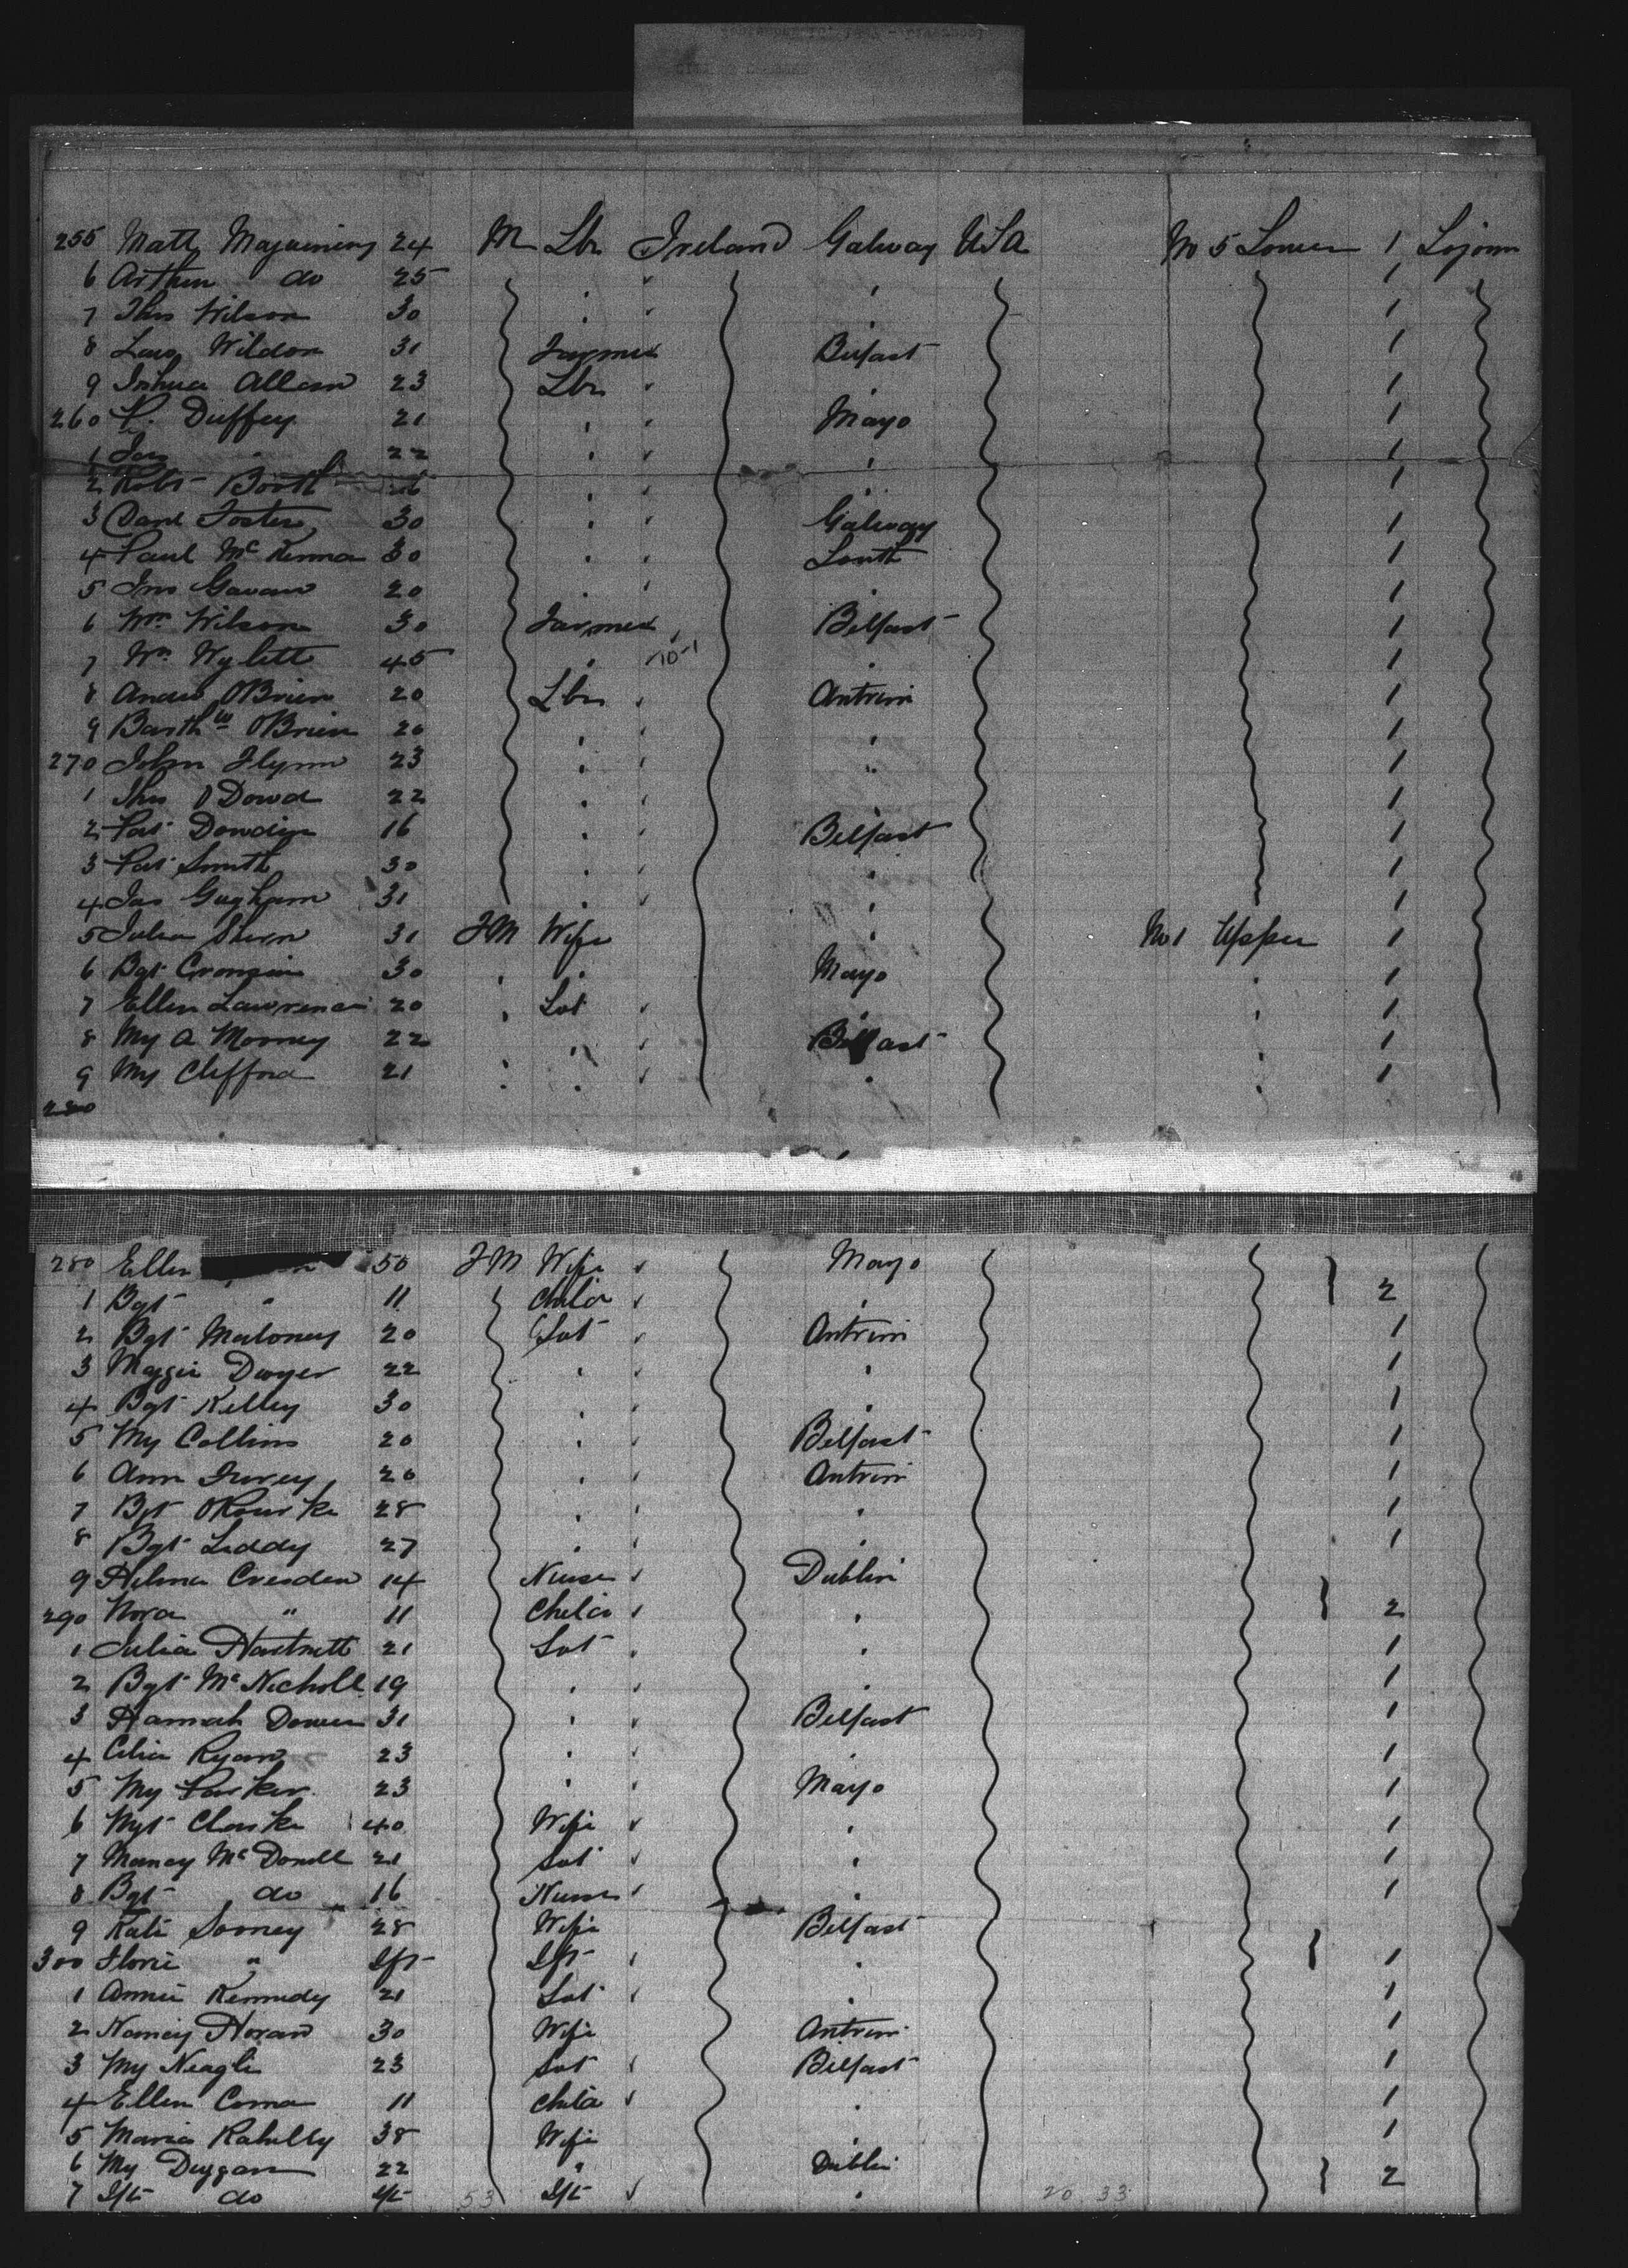 255 Matt 24 M Lbr Ireland Galway USA No 5 Lower 1 Sojourn
6 Arthur do 25 " " " 1
7 Thos Wilson 30 " " " 1
8 Wildon 31 Farmer Belfast 1
9 Joshua Allen 23 Lbr " " 1
260 Duffey 21 " " Mayo 1
1 Jas " 22 " " " 1
2 Robt Booth 26 " " " 1
3 Danl Foster 30 " " Galway 1
4 Paul McKenna 30 " " Louth 1
5 Jno Gavan 20 " " " 1
6 Wm Wilson 30 Farmer " Belfast 1
7 Wm Wylett 45 " 10-1 " 1
8 Andw OBrien 20 Lbr " Antrim 1
9 Barthw OBrien 20 " " " 1
270 John Flynn 23 " " " 1
1 Thos ODowd 22 " " " 1
2 Pat Dowdin 16 " " Belfast 1
3 Pat Smith 30 " " " 1
4 Jas Gugham 31 " " " 1
5 Julia 31 F M Wife " No 1 Upper 1
6 Bgt Cronin 30 " " Mayo " 1
7 Ellen Lawrence 20 " Svt " " " 1
8 My A Mooney 22 " " Belfast " 1
9 My Clifford 21 " " " " 1
280
280 Ellen 50 F M Wife " Mayo
1 Bgt " 11 Child " " } 2
2 Bgt Maloney 20 Svt " Antrim 1
3 Maggie Dwyer 22 " " " 1
4 Bgt Kelley 30 " " " 1
5 My Collins 20 " " Belfast 1
6 Ann Furey 20 " " Antrim 1
7 Bgt ORourke 28 " " " 1
8 Bgt Leddy 27 " " " 1
9 Creeden 14 Nurse " Dublin
290 Nora " 11 Child " " } 2
1 Julia Hartnett 21 Svt " " 1
2 Bgt McNicholl 19 " " " 1
3 Hannah Dower 31 " " Belfast 1
4 Celia Ryan 23 " " " 1
5 My Parker 23 " " Mayo 1
6 Mgt Clarke 40 Wife " " 1
7 McDonell 21 Svt " " 1
8 Bgt do 16 Nurse " " 1
9 Kate Looney 28 Wife Belfast
300 Florie " Ift Ift " " } 1
1 Annie Kennedy 21 Svt " " 1
2 Nancy Horan 30 Wife Antrim 1
3 My Neagle 23 Svt " Belfast 1
4 Ellen 11 Child " " 1
5 Maria Rahelly 38 Wife " 1
6 My Duggan 22 " Dublin
7 Ift do Ift 53 Ift " " 20 33 } 2